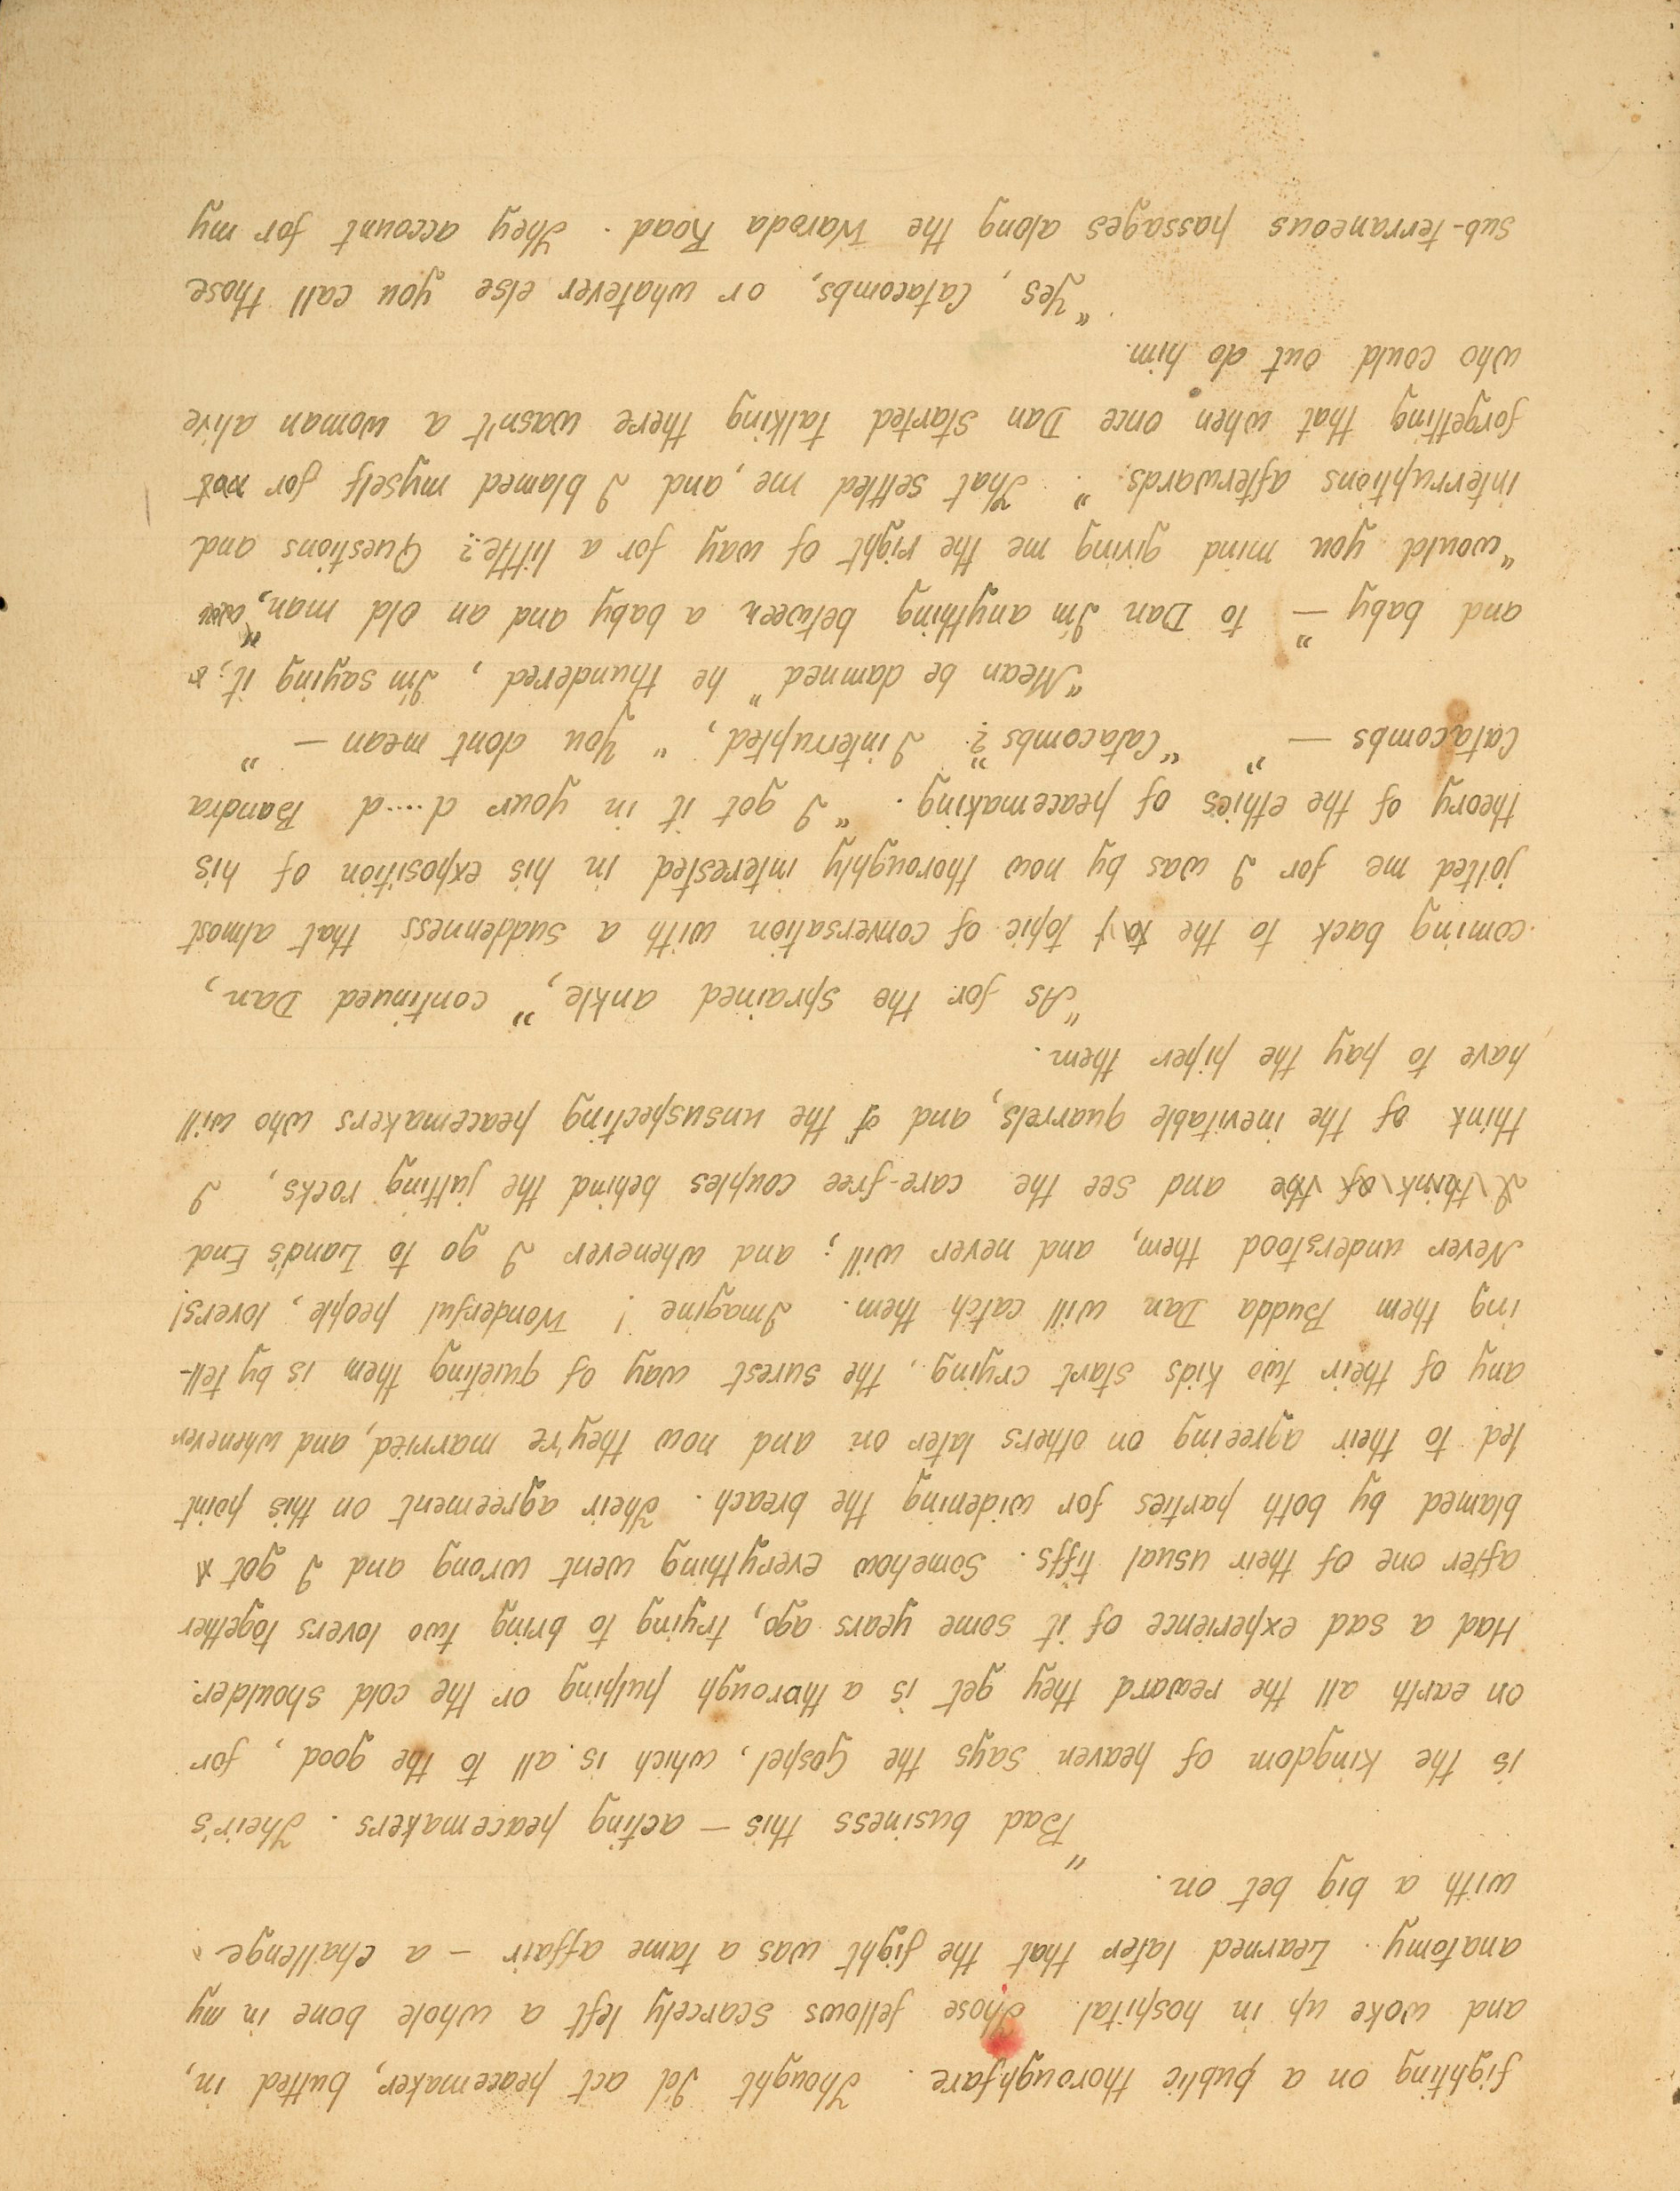 fighting on a public thoroughfare. Thought I'd act peacemaker, butted in,
and woke up in hospital. Those fellows scarcely left a whole bone in my
anatomy. Learned later that the fight was a tame affair – a challenge
with a big bet on.
"Bad business this – acting peacemakers. Their's
is the kingdom of heaven says the Gospel, which is all to the good, for
on earth all the reward they get is a thorough pulping or the cold shoulder.
Had a sad experience of it some years ago, trying to bring two lovers together
after one of their usual tiffs. Somehow everything went wrong and I got
blamed by both parties for widening the breach. Their agreement on this point
led to their agreeing on others later on and now they're married, and whenever
any of their two kids start crying, the surest way of quieting them is by tell-
ing them Budda Dan will catch them. Imagine! Wonderful people, lovers!
Never understood them, and never will; and whenever I go to Land's End
I think of the and see the care-free couples behind the jutting rocks, I
think of the inevitable quarrels, and of the unsuspecting peacemakers who will
have to pay the piper them.
"As for the sprained ankle," continued Dan,
coming back to the topic of conversation with a suddenness that almost
jolted me for I was by now thoroughly interested in his exposition of his
theory of the ethics of peacemaking. "I got it in your d....d Bandra
Catacombs – " "Catacombs"? I interrupted, "You dont mean – "
"Mean be damned" he thundered, I'm saying it;
and baby" – to Dan I'm anything between a baby and an old man,
"would you mind giving me the right of way for a little? Questions and
interruptions afterwards". That settled me, and I blamed myself for not
forgetting that when once Dan started talking there wasn't a woman alive
who could out do him.
"Yes, Catacombs, or whatever else you call those
sub-terraneous passages along the Waroda Road. They account for my